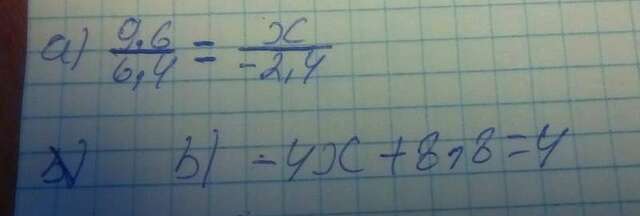 а) 9,6/6,4 = x/-2,4
b) -4x + 8,8 = 4